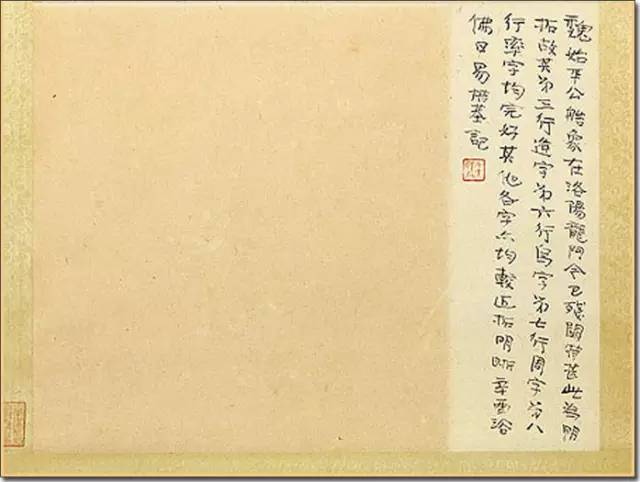 魏始平公造象在洛陽龍門今已殘闕此為明
拓故其第三行造字第六行為字第七行周字第八
行率字均完好其他各字亦均較近拓明晰辛酉浴
佛日易孺記